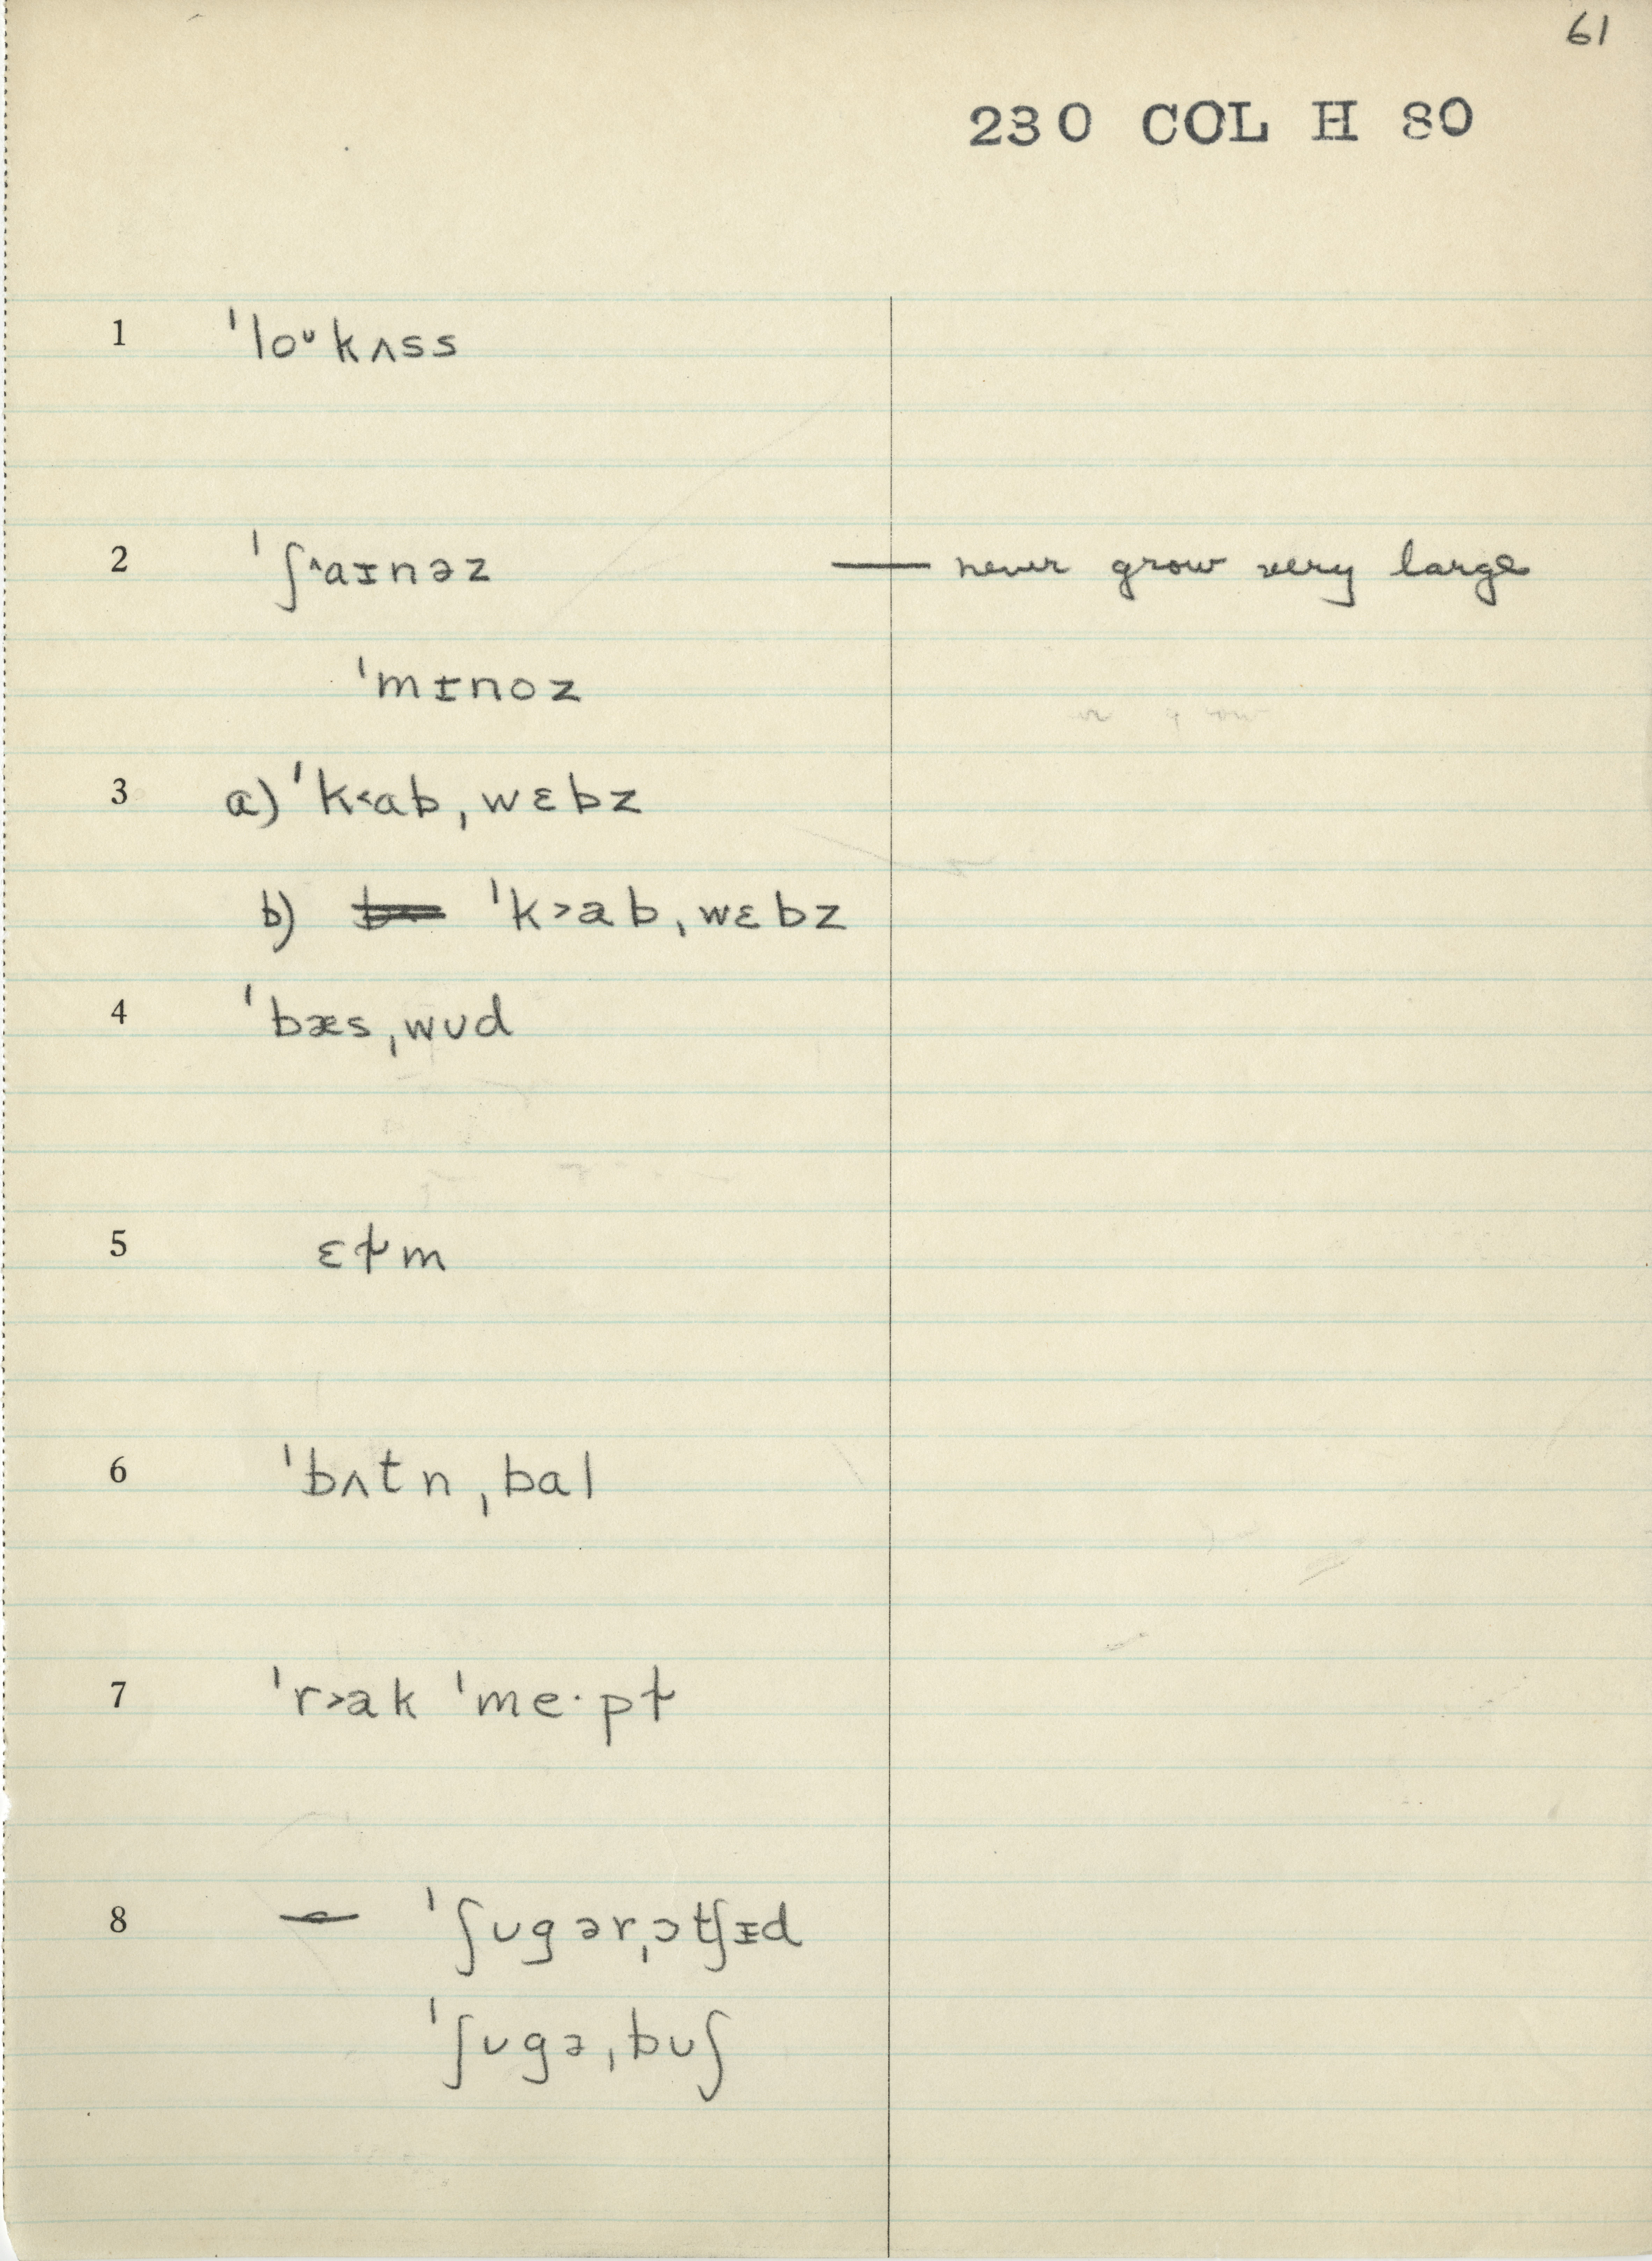 61
230 COL H 80
1 ˈloᶷkʌss
2 ˈʃ˄aɪnəz — never grow very large
ˈmɪnoz
3 a) ˈk˂ab ˌwɛbz
b) ˈk˃ab ˌwɛbz
4 ˈbæs ˌwʊd
5 ɛɫm
6 ˈbʌtn ˌbal
7 ˈr˃ak ˈme·pɫ
8 ˈʃʊgər ˌɔtʃɪd
ˈʃʊgə ˌbʊʃ